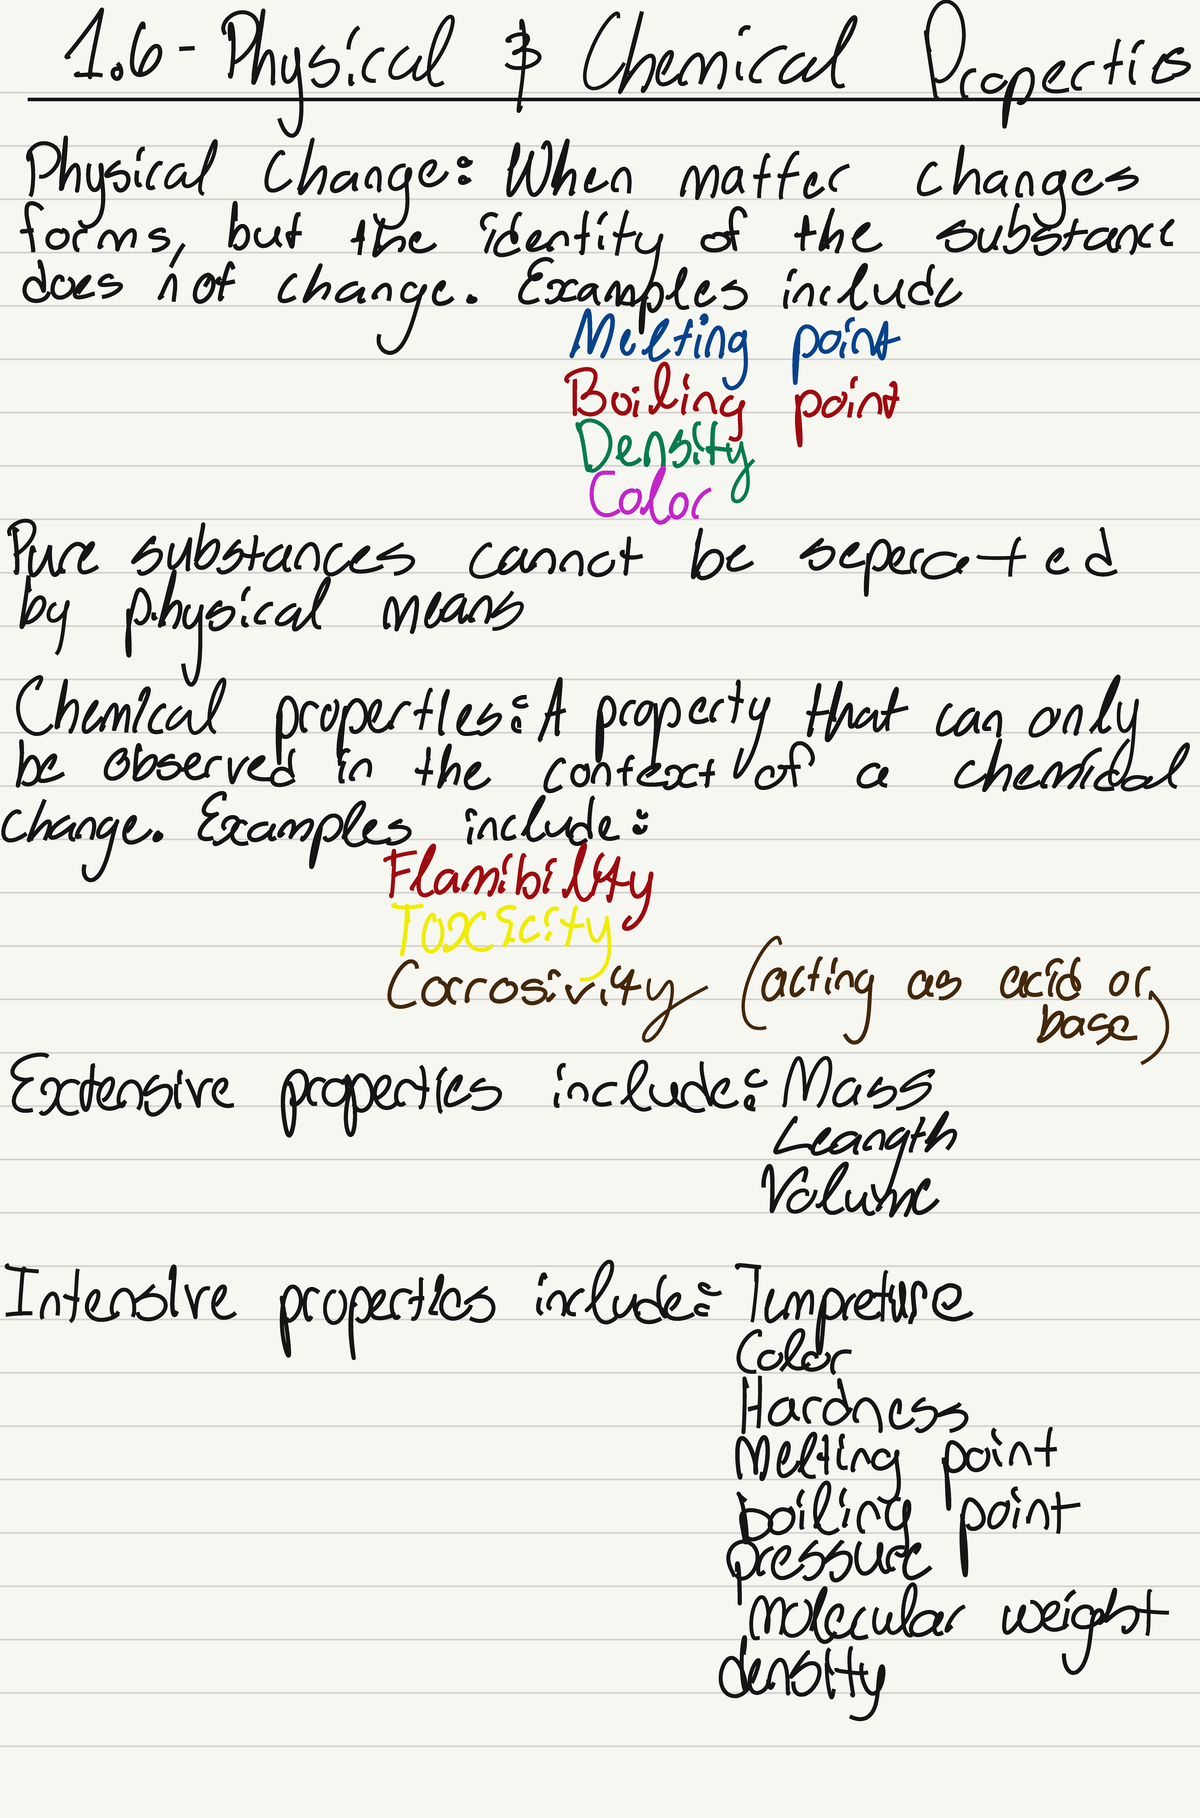 1.6 - Physical & Chemical Properties
Physical Change: When matter changes
forms, but the identity of the substance
does not change. Examples include
Melting point
Boiling point
Density
Color
Pure substances cannot be seperated
by physical means
Chemical properties: A property that can only
be observed in the context of a chemical
change. Examples include:
Flamibility
Toxicity
Corrosivity (acting as acid or
base)
Extensive properties include: Mass
Leangth
Volume
Intensive properties include: Tumpreture
Color
Hardness
Melting point
boiling point
pressure
molecular weight
density